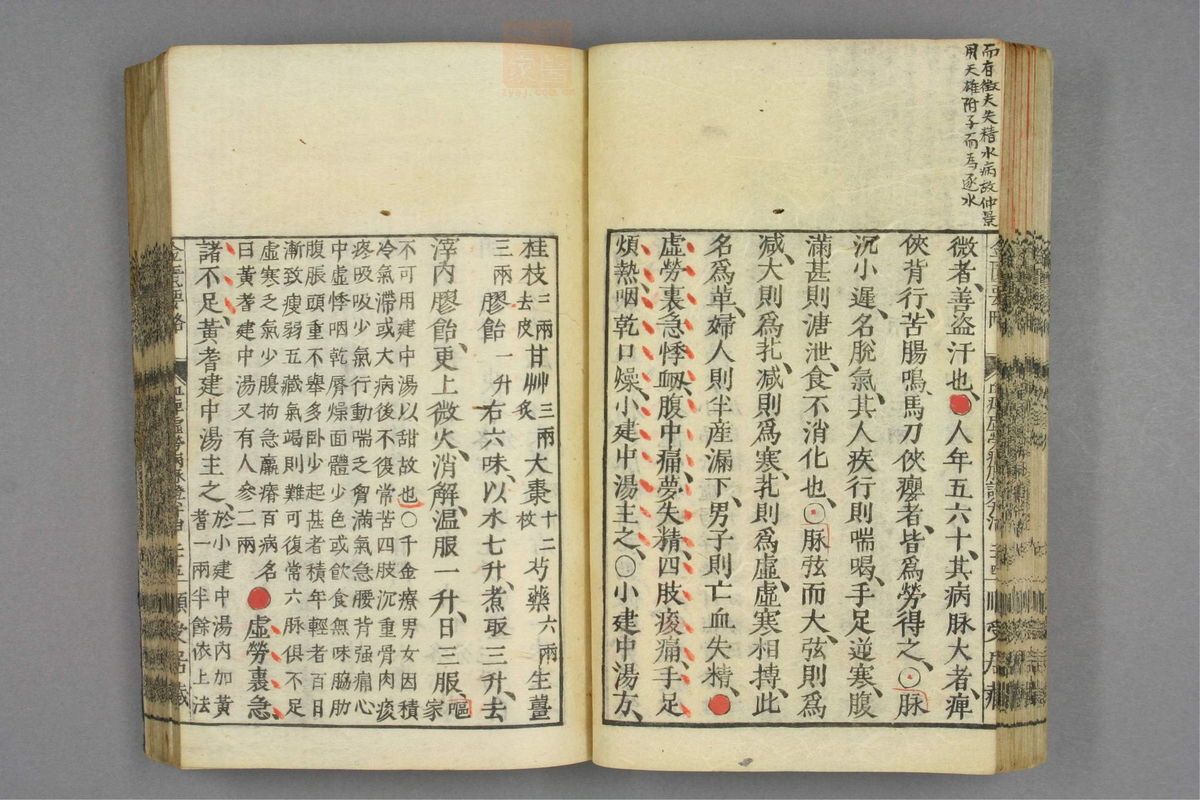 而有微夫失精水病故仲景
用天雄附子而為逐水
微者善盜汗也●人年五六十其病脉大者痺
俠背行苦腸鳴馬刀俠癭者皆為勞得之○脉
沉小遲名脫氣其人疾行則喘喝手足逆寒腹
滿甚則溏泄食不消化也○脉弦而大弦則為
減大則為芤減則為寒芤則為虛虛寒相搏此
名為革婦人則半産漏下男子則亡血失精●
虛勞裏急悸衂腹中痛夢失精四肢痠痛手足
煩熱咽乾口燥小建中湯主之○小建中湯方
桂枝三兩去皮甘艸三兩炙大棗十二枚芍藥六兩生薑
三兩膠飴一升右六味以水七升煮取三升去
滓内膠飴更上微火消解温服一升日三服嘔家
不可用建中湯以甜故也○千金療男女因積
冷氣滯或大病後不復常苦四肢沉重骨肉痠
疼吸吸少氣行動喘乏胷滿氣急腰背强痛心
中虛悸咽乾唇燥面體少色或飲食無味脇肋
腹脹頭重不舉多卧少起甚者積年輕者百日
漸致瘦弱五藏氣竭則難可復常六脉俱不足
虛寒之氣少腹拘急羸瘠百病名
曰黃耆建中湯又有人參二兩
●虛勞裏急
諸不足黃耆建中湯主之於小建中湯内加黃
耆一兩半餘依上法